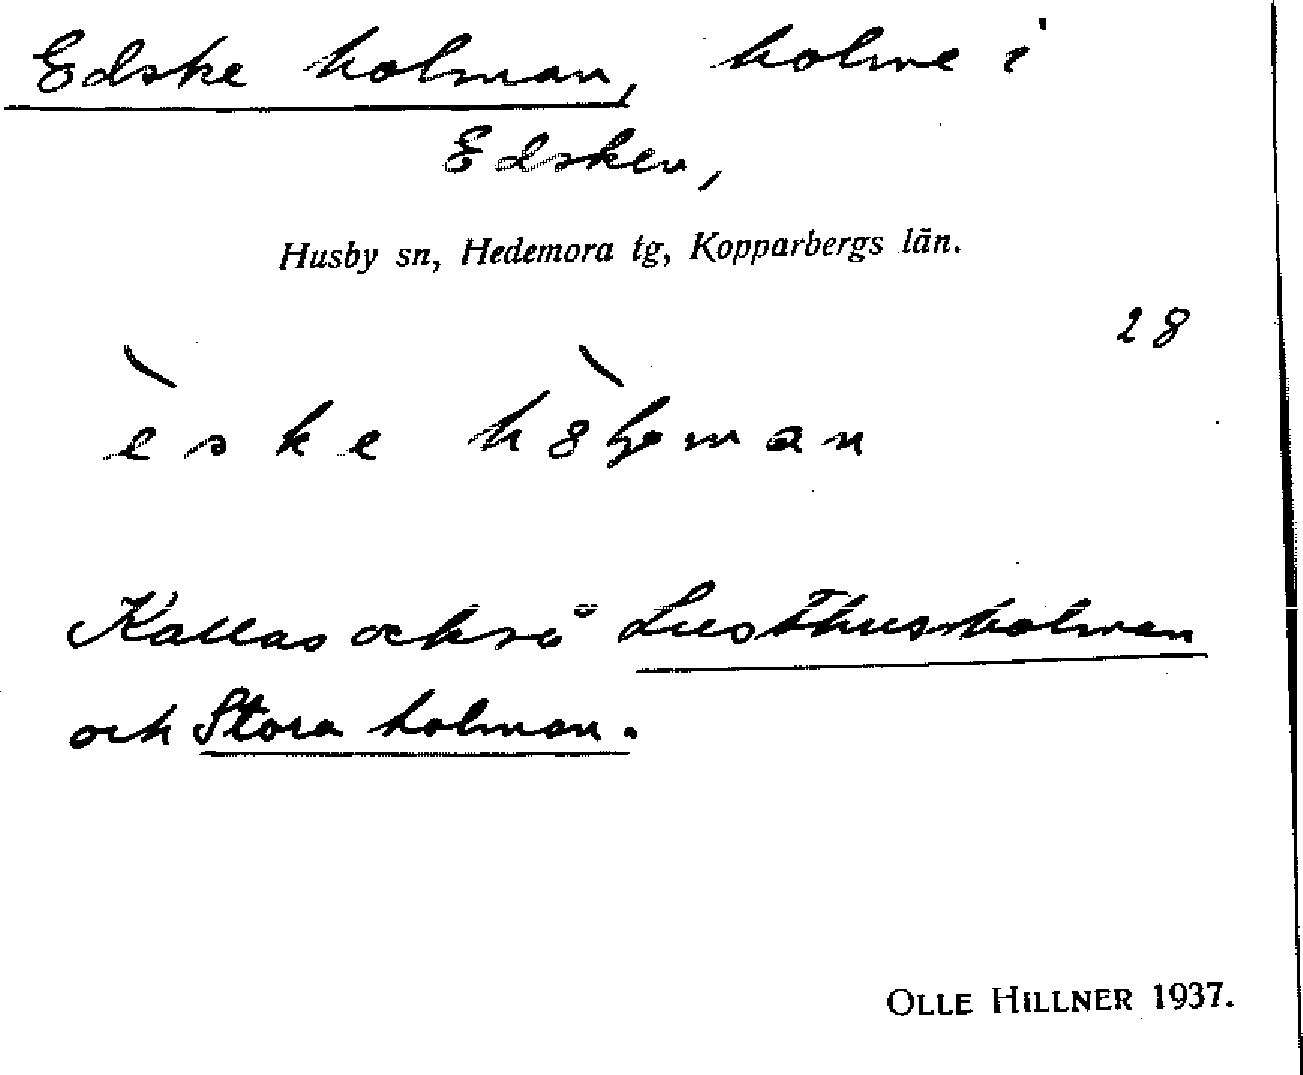 Edske holman, holme i
Edsken,
Husby sn, Hedemora tg, Kopparbergs län.
28
èske
Kallas också Lusthusholmen
och Stora holman.
OLLE HILLNER 1937.